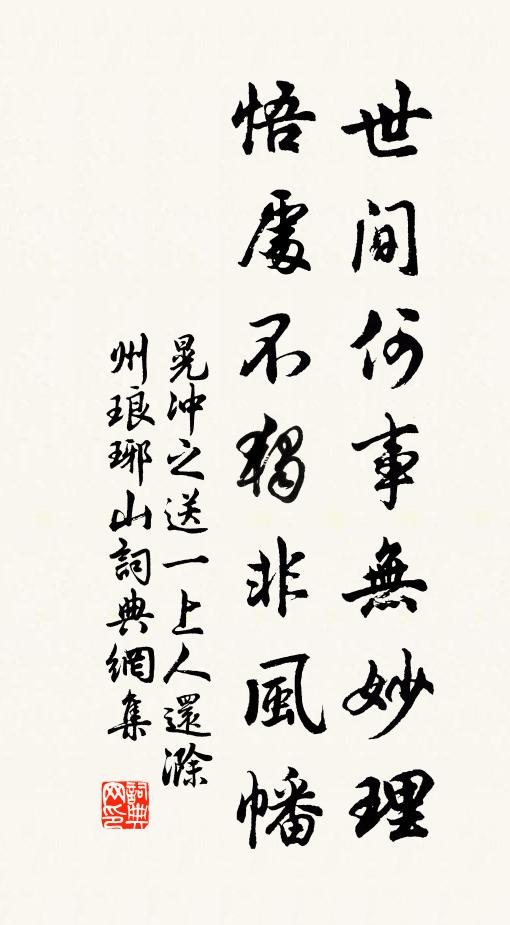 世間何事無妙理
悟處不獨非風幡
晁沖之送一上人還滁
州琅琊山詞典網集
詞典
网印